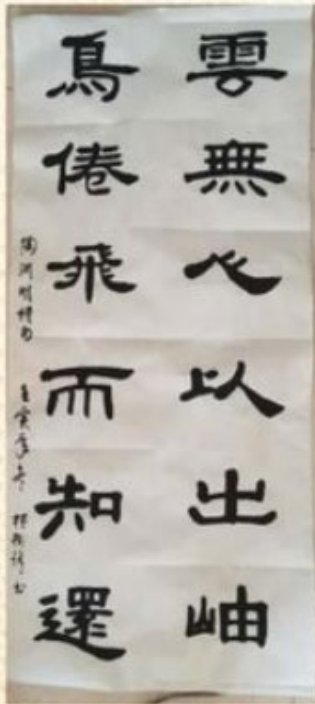 雲無心以出岫
鳥倦飛而知還
陶淵明詩句 壬寅年冬 書